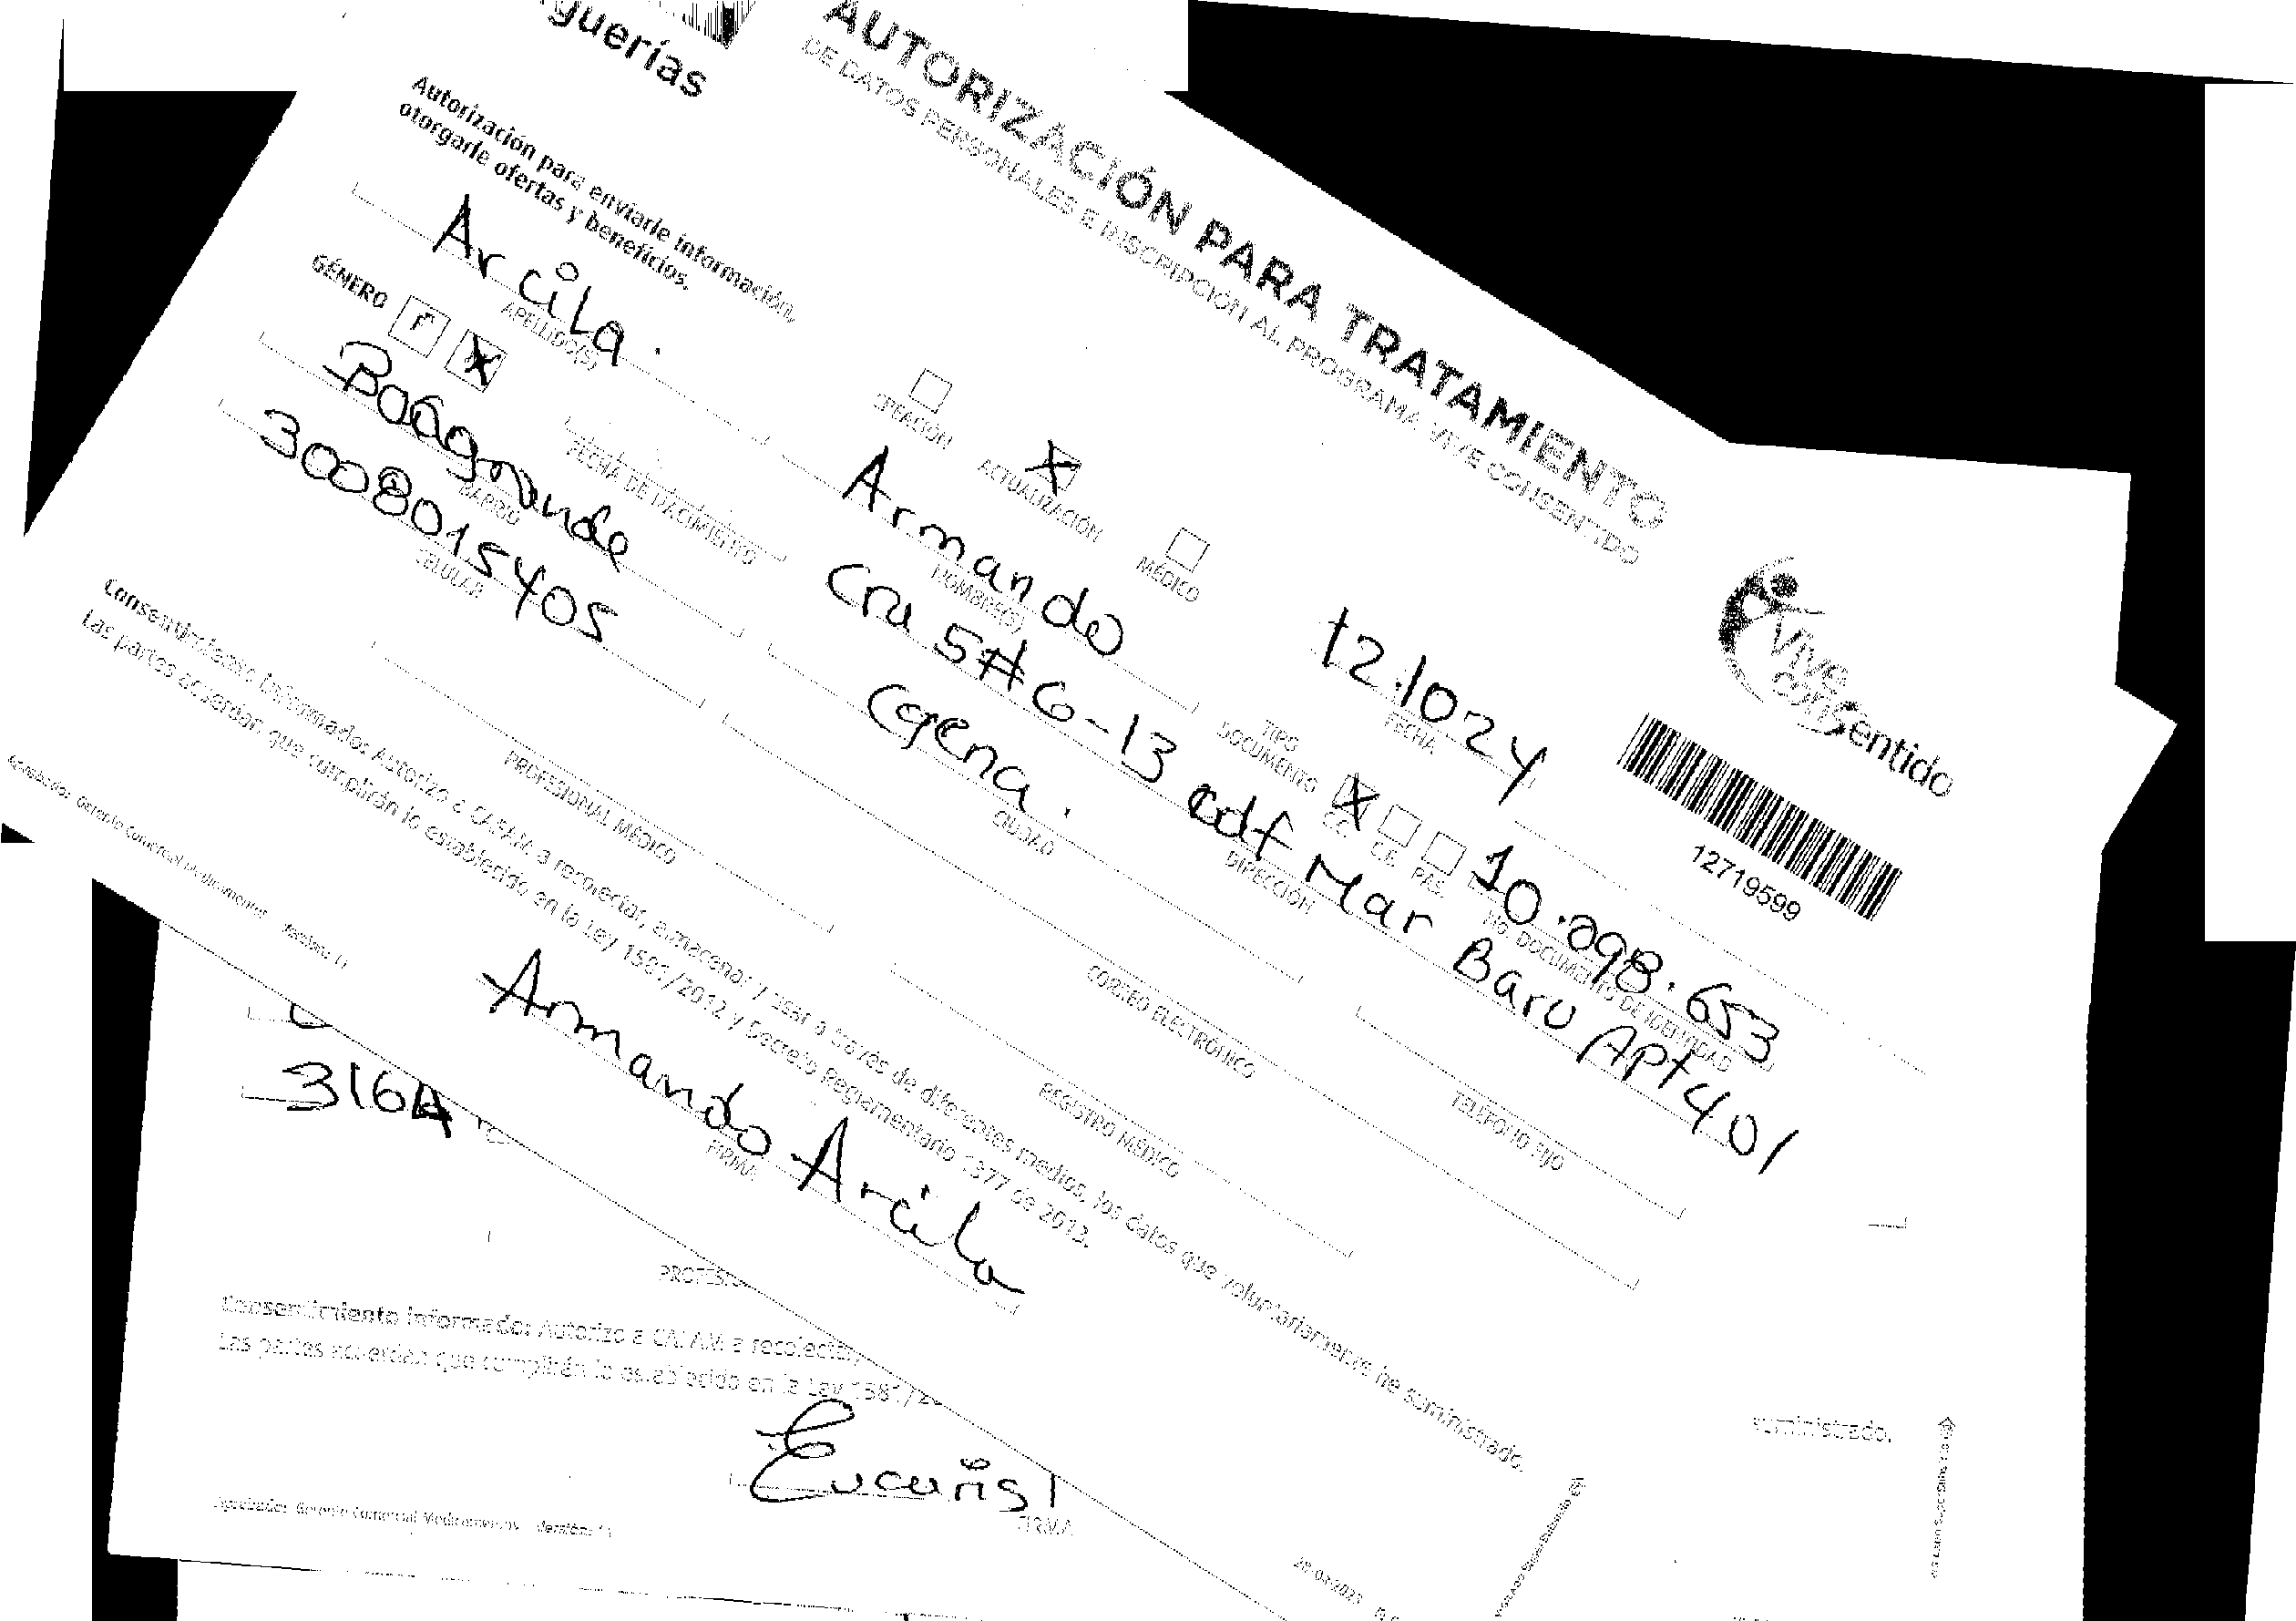 guerías
AUTORIZACIÓN PARA TRATAMIENTO
DE DATOS PERSONALES E INSCRIPCIÓN AL PROGRAMA VIVE CONSENTIDO
Vive
consentido
Autorización para enviarle información,
otorgarle ofertas y beneficios.
CREACIÓN
ACTUALIZACIÓN
MÉDICO
12.1024
FECHA
12719599
Arcila.
APELLIDO(S)
Armando
NOMBRE(S)
TIPO
DOCUMENTO
C.C. C.E. PAS.
10.298.653
No. DOCUMENTO DE IDENTIDAD
GÉNERO F
FECHA DE NACIMIENTO
Cra 5#6-13 edf Mar Baru APt 401
DIRECCIÓN
Bocagrande
BARRIO
Cgena.
CIUDAD
TELÉFONO FIJO
3008015405
CELULAR
CORREO ELECTRÓNICO
PROFESIONAL MÉDICO
REGISTRO MÉDICO
Consentimiento Informado: Autorizo a CAFAM a recolectar, almacenar y usar a través de diferentes medios, los datos que voluntariamente he suministrado.
Las partes acuerdan que cumplirán lo establecido en la Ley 1581/2012 y Decreto Reglamentario 1377 de 2012.
Armando Arcila
FIRMA
Aprobado: Gerente Comercial Medicamentos Versión: 11
3164
PROFESI
Consentimiento Informado: Autorizo a CAFAM a recolectar,
Las partes acuerdan que cumplirán lo establecido en la Ley 1581/2
suministrado.
FIRMA
Aprobado: Gerente Comercial Medicamentos Versión: 11